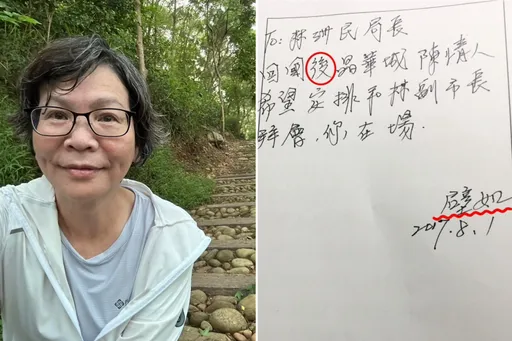 To: 林洲民局長
回國後晶華城陳情人
希望安排和林副市長
拜會，你在場.
壁如
2017.8.1